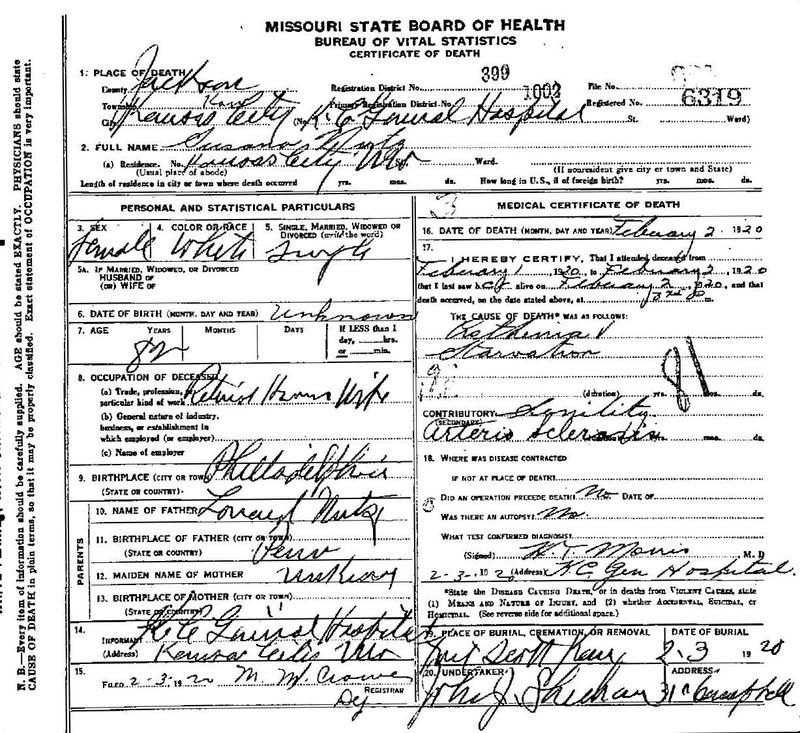 MISSOURI STATE BOARD OF HEALTH
BUREAU OF VITAL STATISTICS
CERTIFICATE OF DEATH
N. B.—Every item of information should be carefully supplied. AGE should be stated EXACTLY. PHYSICIANS should state
CAUSE OF DEATH in plain terms, so that it may be properly classified. Exact statement of OCCUPATION is very important.
1. PLACE OF DEATH
County Jackson Registration District No. 399 File No.
Township Kaw Primary Registration District No. 1002 Registered No. 6319
City Kansas City (No. K.C. General Hospital St. Ward)
2. FULL NAME
(a) Residence. No. Kansas City Mo St. Ward.
(Usual place of abode) (If nonresident give city or town and State)
Length of residence in city or town where death occurred yrs. mos. ds. How long in U.S., if of foreign birth? yrs. mos. ds.
PERSONAL AND STATISTICAL PARTICULARS
3. SEX 4. COLOR OR RACE 5. SINGLE, MARRIED, WIDOWED OR
DIVORCED (write the word)
Female White Single
5A. IF MARRIED, WIDOWED, OR DIVORCED
HUSBAND OF
(OR) WIFE OF
6. DATE OF BIRTH (MONTH, DAY AND YEAR) Unknown
7. AGE YEARS MONTHS DAYS If LESS than 1
day, hrs.
or min.
82
8. OCCUPATION OF DECEASED
(a) Trade, profession, or
particular kind of work Wife
(b) General nature of industry,
business, or establishment in
which employed (or employer)
(c) Name of employer
9. BIRTHPLACE (CITY OR TOWN) Philladelphia
(STATE OR COUNTRY)
PARENTS
10. NAME OF FATHER
11. BIRTHPLACE OF FATHER (CITY OR TOWN)
(STATE OR COUNTRY) Penn
12. MAIDEN NAME OF MOTHER
13. BIRTHPLACE OF MOTHER (CITY OR TOWN)
(STATE OR COUNTRY)
14.
INFORMANT K C General Hospital
(Address) Kansas City Mo
15.
FILED 2-3-1920 M. M. Crowe
REGISTRAR
Dy
MEDICAL CERTIFICATE OF DEATH
16. DATE OF DEATH (MONTH, DAY AND YEAR) February 2 1920
17.
I HEREBY CERTIFY, That I attended deceased from
February 1 1920, to February 2, 1920
that I last saw h er alive on February 2, 1920, and that
death occurred, on the date stated above, at m.
THE CAUSE OF DEATH* WAS AS FOLLOWS:
Asthenia
Starvation
81
(duration) yrs. mos. ds.
CONTRIBUTORY Senility
(SECONDARY)
Arterio Sclerosis mos. ds.
18. WHERE WAS DISEASE CONTRACTED
IF NOT AT PLACE OF DEATH?
DID AN OPERATION PRECEDE DEATH? No DATE OF
WAS THERE AN AUTOPSY? No
WHAT TEST CONFIRMED DIAGNOSIS?
(Signed) W. T. Morris M. D
2-3-1920 (Address) K.C. Gen Hospital.
*State the DISEASE CAUSING DEATH, or in deaths from VIOLENT CAUSES, state
(1) MEANS AND NATURE OF INJURY, and (2) whether ACCIDENTAL, SUICIDAL, or
HOMICIDAL. (See reverse side for additional space.)
19. PLACE OF BURIAL, CREMATION, OR REMOVAL DATE OF BURIAL
Scott 2-3 1920
20. UNDERTAKER ADDRESS
John J. Sheehan Campbell